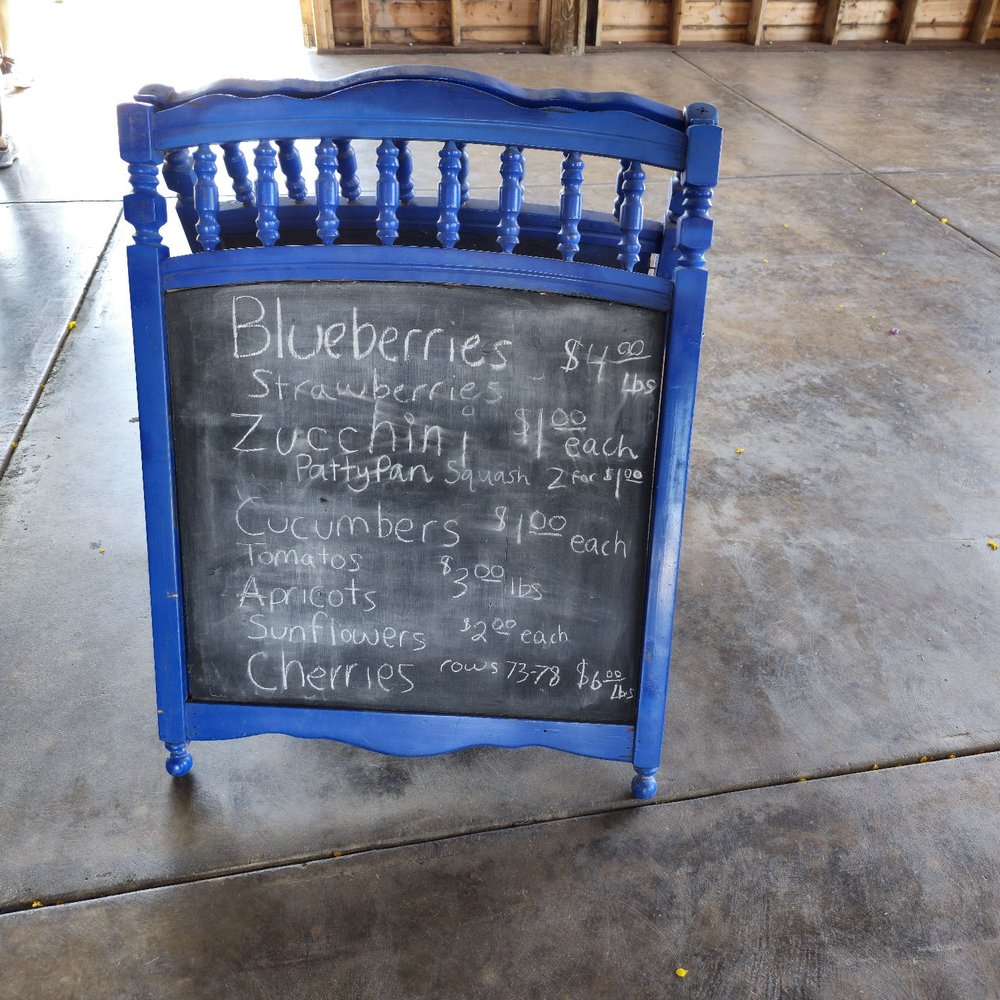 Blueberries $4.00 lbs
Strawberries
Zucchini $1.00 each
Pattypan Squash 2 for $1.00
Cucumbers $1.00 each
Tomatos $3.00 lbs
Apricots
Sunflowers $2.00 each
Cherries rows 73-78 $6.00 lbs